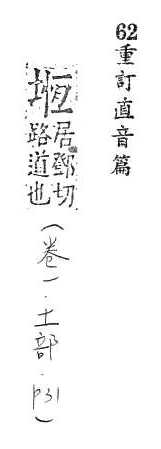 62重訂直音篇
堩居鄧切
路道也
(卷一.土部.p31)